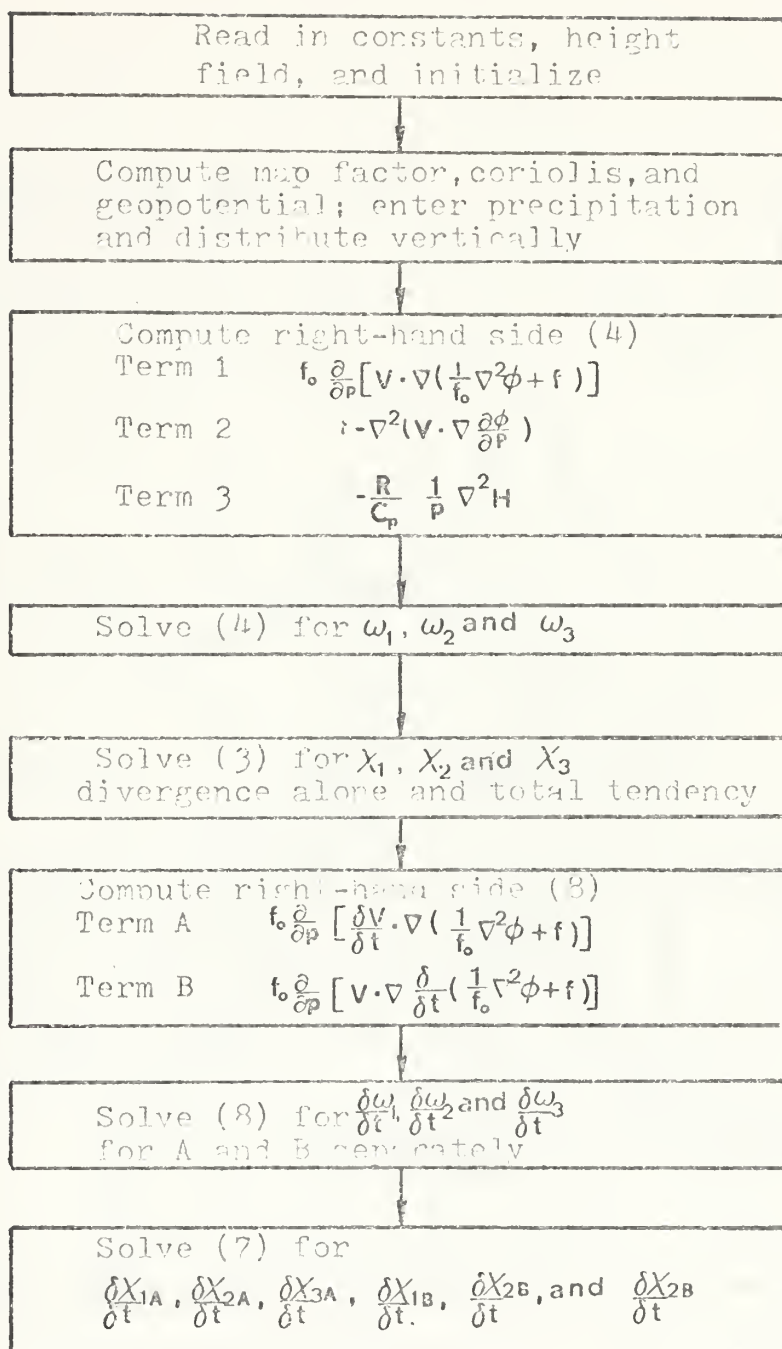 Read in constants, height
field, and initialize
Compute map factor,coriolis,and
geopotential; enter precipitation
and distribute vertically
Compute right-hand side (4)
Term 1 f₀ ∂/∂P [V·∇(1/f₀ ∇²φ + f)]
Term 2 -∇²(V·∇ ∂φ/∂P)
Term 3 -R/Cp 1/P ∇²H
Solve (4) for ω₁, ω₂ and ω₃
Solve (3) for X₁, X₂ and X₃
divergence alone and total tendency
Compute right-hand side (8)
Term A f₀ ∂/∂p [δV/δt·∇(1/f₀ ∇²φ + f)]
Term B f₀ ∂/∂p [V·∇ δ/δt(1/f₀ ∇²φ + f)]
Solve (8) for δω₁/δt, δω₂/δt and δω₃/δt
for A and B separately
Solve (7) for
δX₁A/δt, δX₂A/δt, δX₃A/δt, δX₁B/δt, δX₂B/δt, and δX₂B/δt